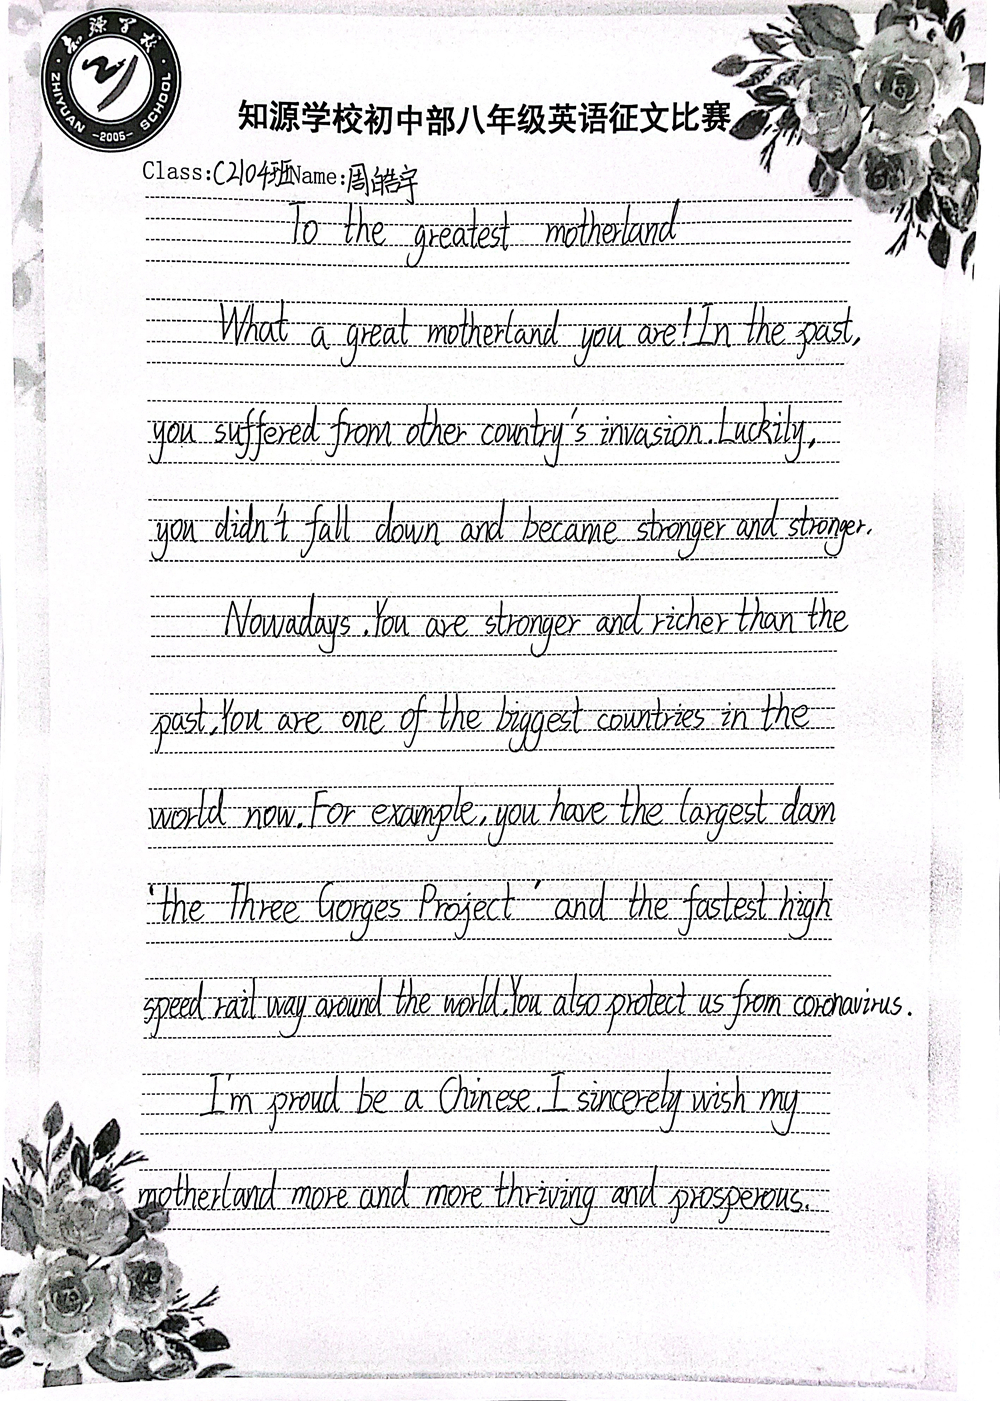 知源学校
ZHIYUAN SCHOOL
-2005-
知源学校初中部八年级英语征文比赛
Class:C2104班Name:周皓宇
To the greatest motherland
What a great motherland you are!In the past,
you suffered from other country's invasion.Luckily,
you didn't fall down and became stronger and stronger.
Nowadays.You are stronger and richer than the
past,You are one of the biggest countries in the
world now.For example,you have the largest dam
'the Three Gorges Project' and the fastest high
speed rail way around the world.You also protect us from coronavirus.
I'm proud be a Chinese.I sincerely wish my
motherland more and more thriving and prosperous.